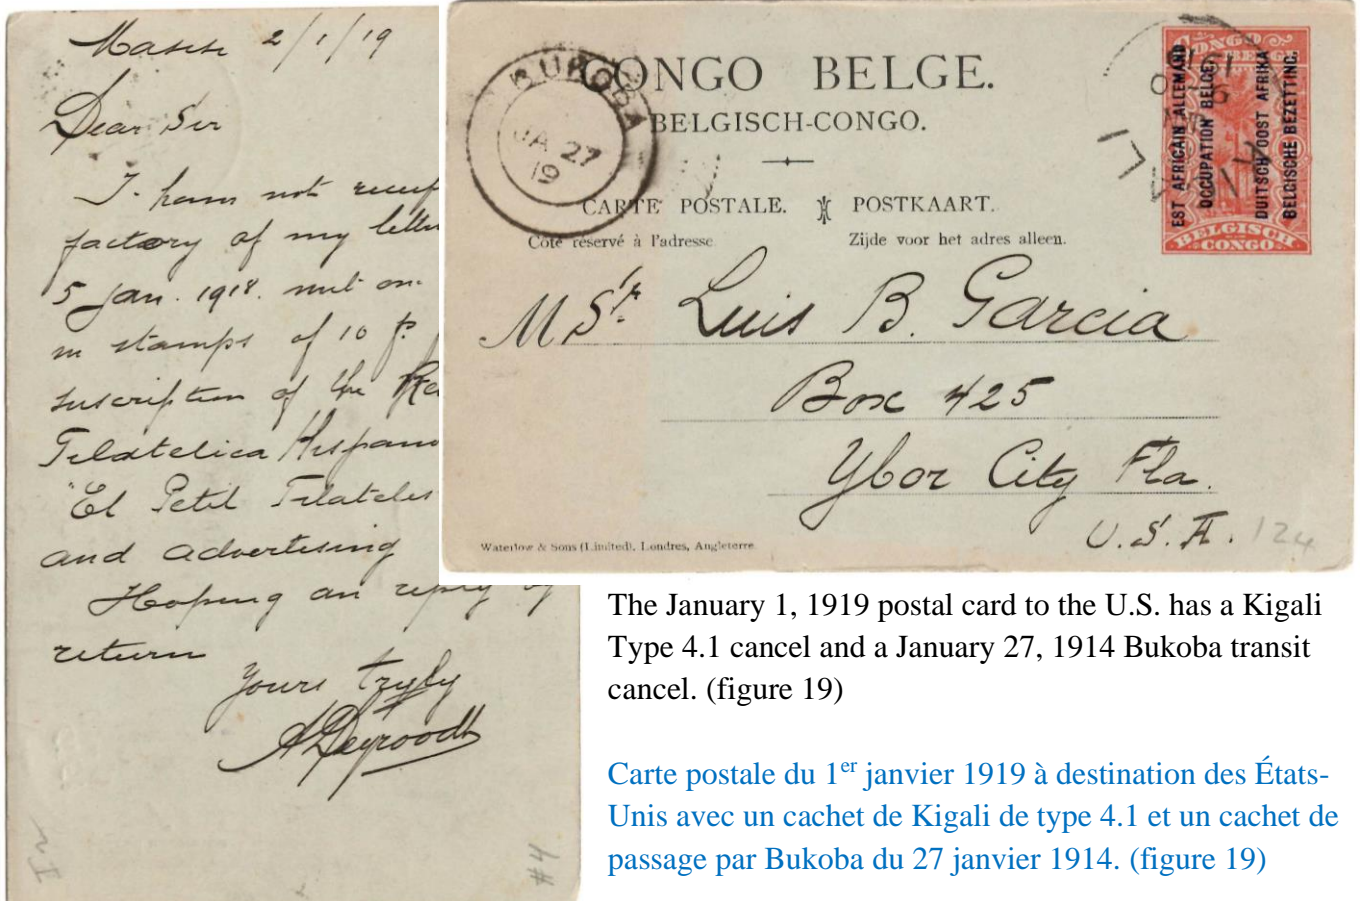 Masisi 2/1/19
Dear Sir
I ham not
factory of my
5 Jan. 1918.
in stamps of 10 f.
suscription of the
Filatelica Hispano
"El Petit
and advertising
Hoping an reply of
return
Yours tryly
CONGO BELGE.
BELGISCH-CONGO.
CARTE POSTALE. POSTKAART.
Côté réservé à l'adresse. Zijde voor het adres alleen.
BUKOBA
JA 27
19
CONGO
BELGE
EST AFRICAIN ALLEMAND
OCCUPATION BELGE.
DUITSCH OOST AFRIKA
BELGISCHE BEZETTING.
BELGISCH
CONGO
M Sr. Luis B. Garcia
Box 425
Ybor City Fla.
U.S.A. 124
Waterlow & Sons (Limited), Londres, Angleterre.
The January 1, 1919 postal card to the U.S. has a Kigali
Type 4.1 cancel and a January 27, 1914 Bukoba transit
cancel. (figure 19)
Carte postale du 1er janvier 1919 à destination des États-
Unis avec un cachet de Kigali de type 4.1 et un cachet de
passage par Bukoba du 27 janvier 1914. (figure 19)